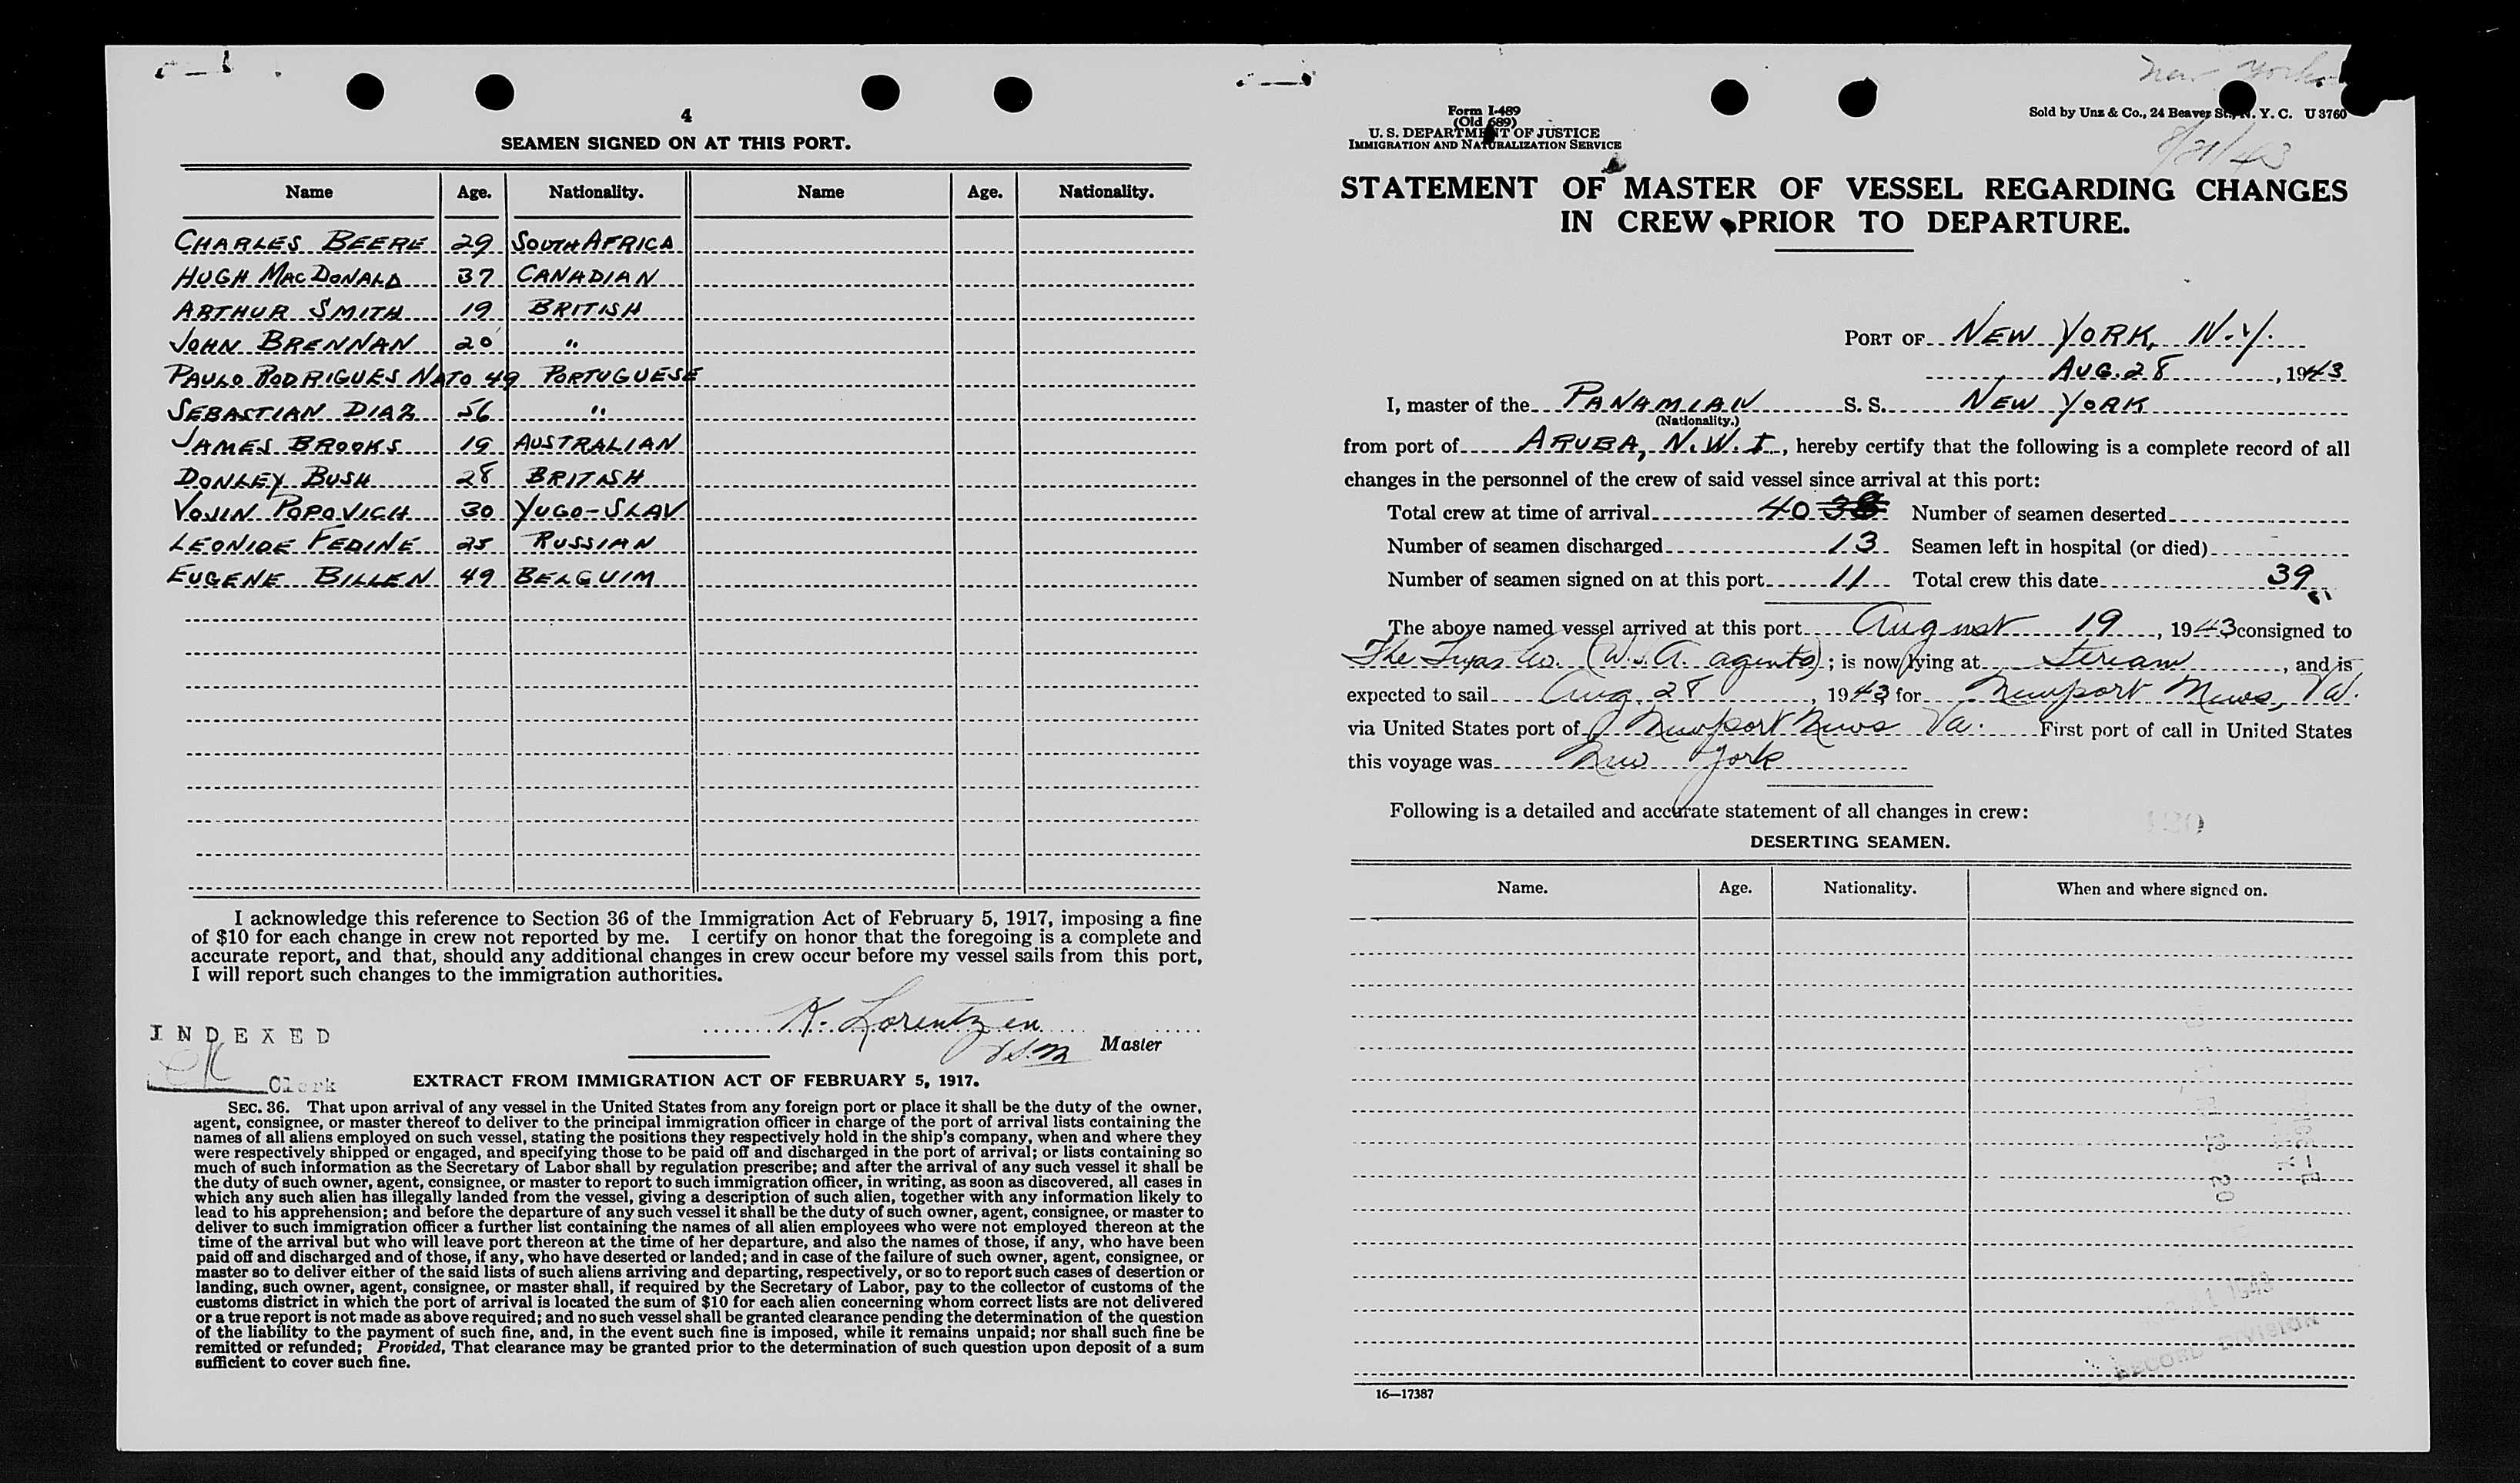 4
SEAMEN SIGNED ON AT THIS PORT.
Name Age. Nationality. Name Age. Nationality.
CHARLES BEERE 29 SOUTH AFRICA
HUGH MACDONALD 37 CANADIAN
ARTHUR SMITH 19 BRITISH
JOHN BRENNAN 20 "
PAULO RODRIGUES NATO 49 PORTUGUESE
SEBASTIAN DIAZ 56 "
JAMES BROOKS 19 AUSTRALIAN
DONLEY BUSH 28 BRITISH
VOJIN POPOVICH 30 YUGO-SLAV
LEONIDE FEDINE 25 RUSSIAN
EUGENE BILLEN 49 BELGUIM
I acknowledge this reference to Section 36 of the Immigration Act of February 5, 1917, imposing a fine
of $10 for each change in crew not reported by me. I certify on honor that the foregoing is a complete and
accurate report, and that, should any additional changes in crew occur before my vessel sails from this port,
I will report such changes to the immigration authorities.
K. Lorentzen
Master
INDEXED
Clerk
EXTRACT FROM IMMIGRATION ACT OF FEBRUARY 5, 1917.
SEC. 36. That upon arrival of any vessel in the United States from any foreign port or place it shall be the duty of the owner,
agent, consignee, or master thereof to deliver to the principal immigration officer in charge of the port of arrival lists containing the
names of all aliens employed on such vessel, stating the positions they respectively hold in the ship's company, when and where they
were respectively shipped or engaged, and specifying those to be paid off and discharged in the port of arrival; or lists containing so
much of such information as the Secretary of Labor shall by regulation prescribe; and after the arrival of any such vessel it shall be
the duty of such owner, agent, consignee, or master to report to such immigration officer, in writing, as soon as discovered, all cases in
which any such alien has illegally landed from the vessel, giving a description of such alien, together with any information likely to
lead to his apprehension; and before the departure of any such vessel it shall be the duty of such owner, agent, consignee, or master to
deliver to such immigration officer a further list containing the names of all alien employees who were not employed thereon at the
time of the arrival but who will leave port thereon at the time of her departure, and also the names of those, if any, who have been
paid off and discharged and of those, if any, who have deserted or landed; and in case of the failure of such owner, agent, consignee, or
master so to deliver either of the said lists of such aliens arriving and departing, respectively, or so to report such cases of desertion or
landing, such owner, agent, consignee, or master shall, if required by the Secretary of Labor, pay to the collector of customs of the
customs district in which the port of arrival is located the sum of $10 for each alien concerning whom correct lists are not delivered
or a true report is not made as above required; and no such vessel shall be granted clearance pending the determination of the question
of the liability to the payment of such fine, and, in the event such fine is imposed, while it remains unpaid; nor shall such fine be
remitted or refunded; Provided, That clearance may be granted prior to the determination of such question upon deposit of a sum
sufficient to cover such fine.
New York
Form I-489
(Old 689)
U. S. DEPARTMENT OF JUSTICE
IMMIGRATION AND NATURALIZATION SERVICE
Sold by Unz & Co., 24 Beaver St., N. Y. C. U 3760
STATEMENT OF MASTER OF VESSEL REGARDING CHANGES
IN CREW PRIOR TO DEPARTURE.
PORT OF NEW YORK, N.Y.
AUG. 28, 1943
I, master of the PANAMIAN S. S. NEW YORK
(Nationality.)
from port of ARUBA, N.W.I., hereby certify that the following is a complete record of all
changes in the personnel of the crew of said vessel since arrival at this port:
Total crew at time of arrival 40 38 Number of seamen deserted
Number of seamen discharged 13 Seamen left in hospital (or died)
Number of seamen signed on at this port 11 Total crew this date 39
The above named vessel arrived at this port August 19, 1943 consigned to
The Texas Co. (W.S.A. agents); is now lying at Stream, and is
expected to sail Aug. 28, 1943 for Newport News, Va.
via United States port of Newport News Va. First port of call in United States
this voyage was New York
Following is a detailed and accurate statement of all changes in crew:
DESERTING SEAMEN.
Name. Age. Nationality. When and where signed on.
RECORD DIVISION
16—17387